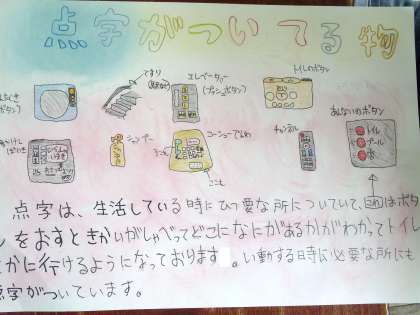 点字がついてる物
ボタン)
てすり
エレベーター
(プッシュボタン)
トイレのボタン
シャンプー
コーシューでんわ
ここ
あんないのボタン
トイレ
プール
点字は、生活している時にひつ要な所についていて、これはボタ
ンをおすときかいがしゃべってどこになにがあるかがわかってトイレ
とかに行けるようになっております。い動する時に必要な所にも
点字がついています。